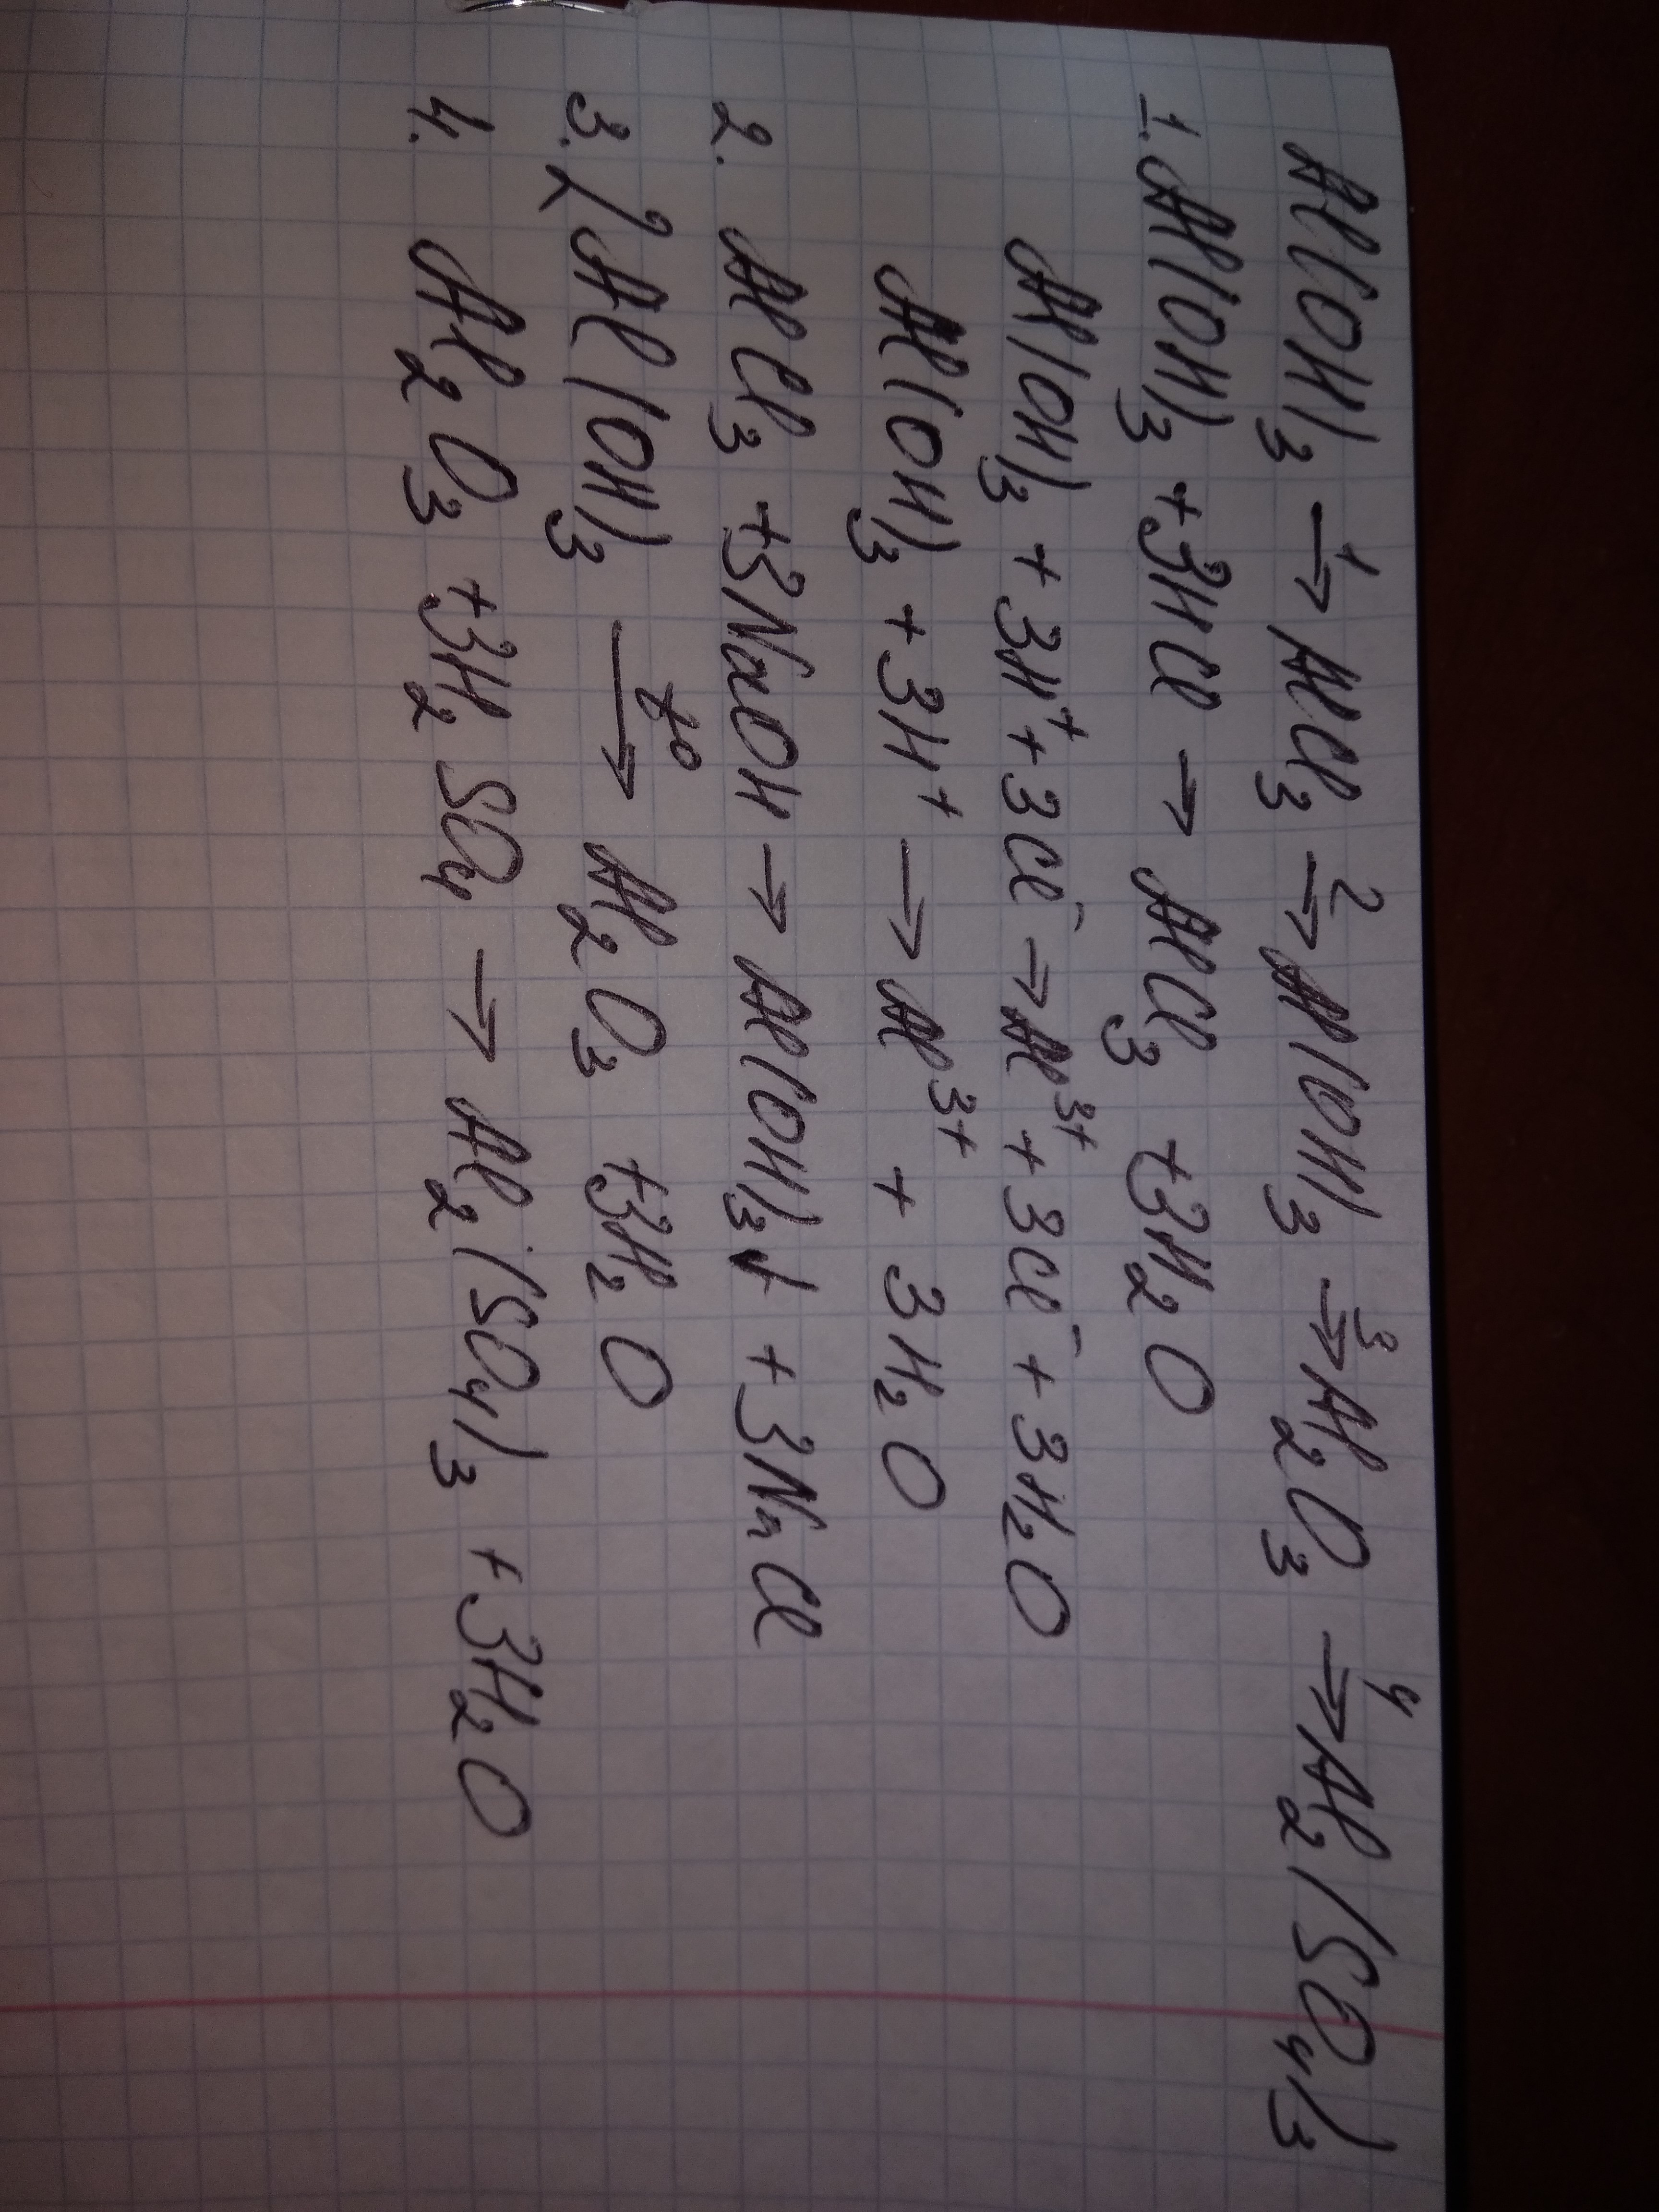 Al(OH)₃ →¹ AlCl₃ →² Al(OH)₃ →³ Al₂O₃ →⁴ Al₂(SO₄)₃
1. Al(OH)₃ + 3HCl → AlCl₃ + 3H₂O
Al(OH)₃ + 3H⁺ + 3Cl⁻ → Al³⁺ + 3Cl⁻ + 3H₂O
Al(OH)₃ + 3H⁺ → Al³⁺ + 3H₂O
2. AlCl₃ + 3NaOH → Al(OH)₃↓ + 3NaCl
3. 2Al(OH)₃ →ᵗ° Al₂O₃ + 3H₂O
4. Al₂O₃ + 3H₂SO₄ → Al₂(SO₄)₃ + 3H₂O